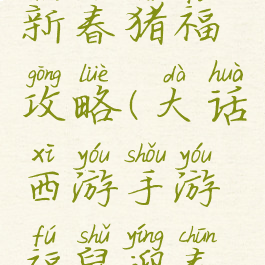 新春猪福
gōng lüè dà huà
攻略(大话
xī yóu shǒu yóu
西游手游
fú shǔ yíng chūn
福鼠迎春